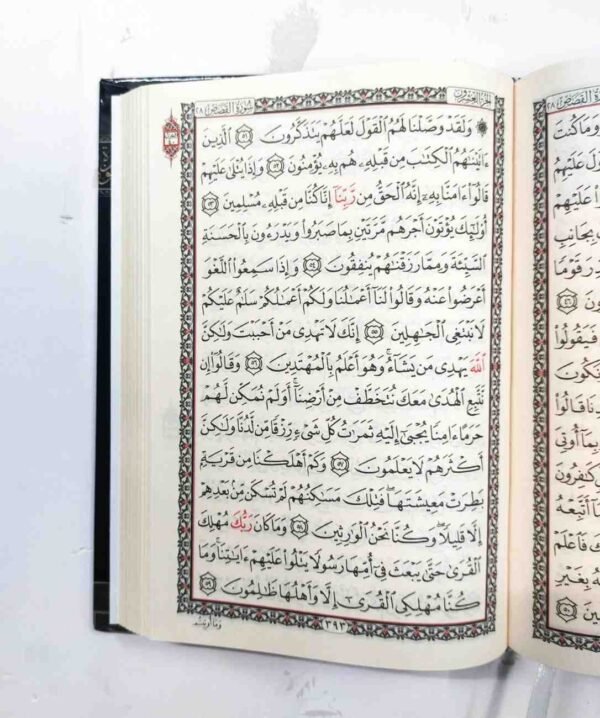 سُورَةُ القَصَصِ ٢٨
وَمَا كُنتَ
عَلَيْهِمْ
عَلَيْهِمْ
بِجَانِبِ
قَوْمًا
٤٦
فَيَقُولُوا۟
قَالُوا۟
بِمَآ أُوتِىَ
كَٰفِرُونَ
أَتَّبِعْهُ
فَٱعْلَمْ
بِغَيْرِ
٥٠
الجُزْءُ العِشْرُونَ سُورَةُ القَصَصِ ٢٨
۞ وَلَقَدْ وَصَّلْنَا لَهُمُ ٱلْقَوْلَ لَعَلَّهُمْ يَتَذَكَّرُونَ ٥١ ٱلَّذِينَ
ءَاتَيْنَٰهُمُ ٱلْكِتَٰبَ مِن قَبْلِهِۦ هُم بِهِۦ يُؤْمِنُونَ ٥٢ وَإِذَا يُتْلَىٰ عَلَيْهِمْ
قَالُوٓا۟ ءَامَنَّا بِهِۦٓ إِنَّهُ ٱلْحَقُّ مِن رَّبِّنَآ إِنَّا كُنَّا مِن قَبْلِهِۦ مُسْلِمِينَ ٥٣
أُو۟لَٰٓئِكَ يُؤْتَوْنَ أَجْرَهُم مَّرَّتَيْنِ بِمَا صَبَرُوا۟ وَيَدْرَءُونَ بِٱلْحَسَنَةِ
ٱلسَّيِّئَةَ وَمِمَّا رَزَقْنَٰهُمْ يُنفِقُونَ ٥٤ وَإِذَا سَمِعُوا۟ ٱللَّغْوَ
أَعْرَضُوا۟ عَنْهُ وَقَالُوا۟ لَنَآ أَعْمَٰلُنَا وَلَكُمْ أَعْمَٰلُكُمْ سَلَٰمٌ عَلَيْكُمْ
لَا نَبْتَغِى ٱلْجَٰهِلِينَ ٥٥ إِنَّكَ لَا تَهْدِى مَنْ أَحْبَبْتَ وَلَٰكِنَّ
ٱللَّهَ يَهْدِى مَن يَشَآءُ ۚ وَهُوَ أَعْلَمُ بِٱلْمُهْتَدِينَ ٥٦ وَقَالُوٓا۟ إِن
نَّتَّبِعِ ٱلْهُدَىٰ مَعَكَ نُتَخَطَّفْ مِنْ أَرْضِنَآ ۚ أَوَلَمْ نُمَكِّن لَّهُمْ
حَرَمًا ءَامِنًا يُجْبَىٰٓ إِلَيْهِ ثَمَرَٰتُ كُلِّ شَىْءٍ رِّزْقًا مِّن لَّدُنَّا وَلَٰكِنَّ
أَكْثَرَهُمْ لَا يَعْلَمُونَ ٥٧ وَكَمْ أَهْلَكْنَا مِن قَرْيَةٍۭ
بَطِرَتْ مَعِيشَتَهَا ۖ فَتِلْكَ مَسَٰكِنُهُمْ لَمْ تُسْكَن مِّنۢ بَعْدِهِمْ
إِلَّا قَلِيلًا ۖ وَكُنَّا نَحْنُ ٱلْوَٰرِثِينَ ٥٨ وَمَا كَانَ رَبُّكَ مُهْلِكَ
ٱلْقُرَىٰ حَتَّىٰ يَبْعَثَ فِىٓ أُمِّهَا رَسُولًا يَتْلُوا۟ عَلَيْهِمْ ءَايَٰتِنَا ۚ وَمَا
كُنَّا مُهْلِكِى ٱلْقُرَىٰٓ إِلَّا وَأَهْلُهَا ظَٰلِمُونَ ٥٩
٣٩٣
وَمَا أُوتِيتُم